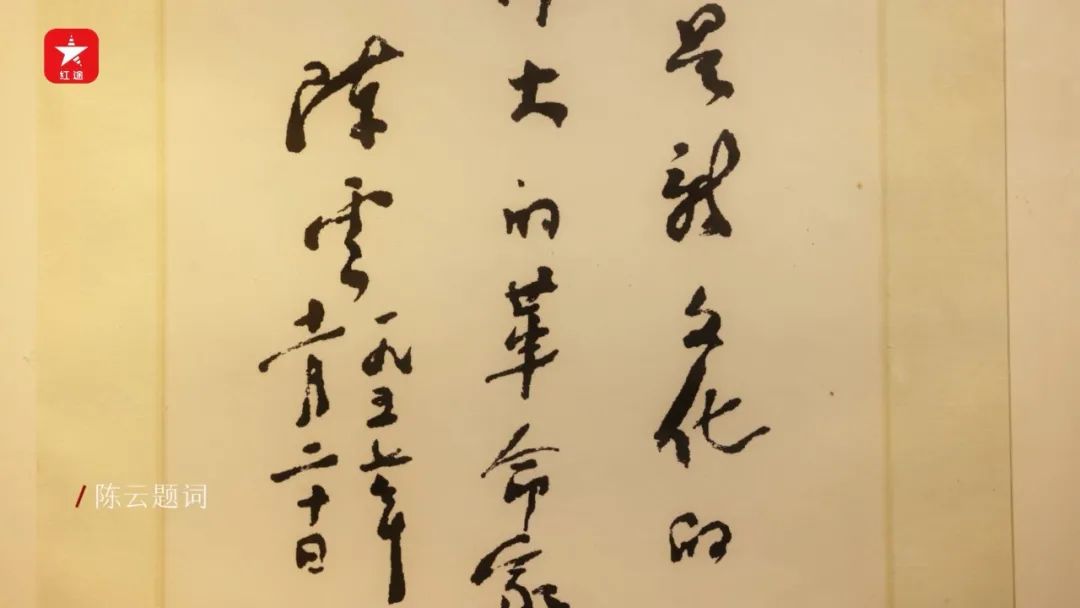 红途
是新文化的
大的革命家
陈雲
一九五七年
十一月二十日
/ 陈云题词